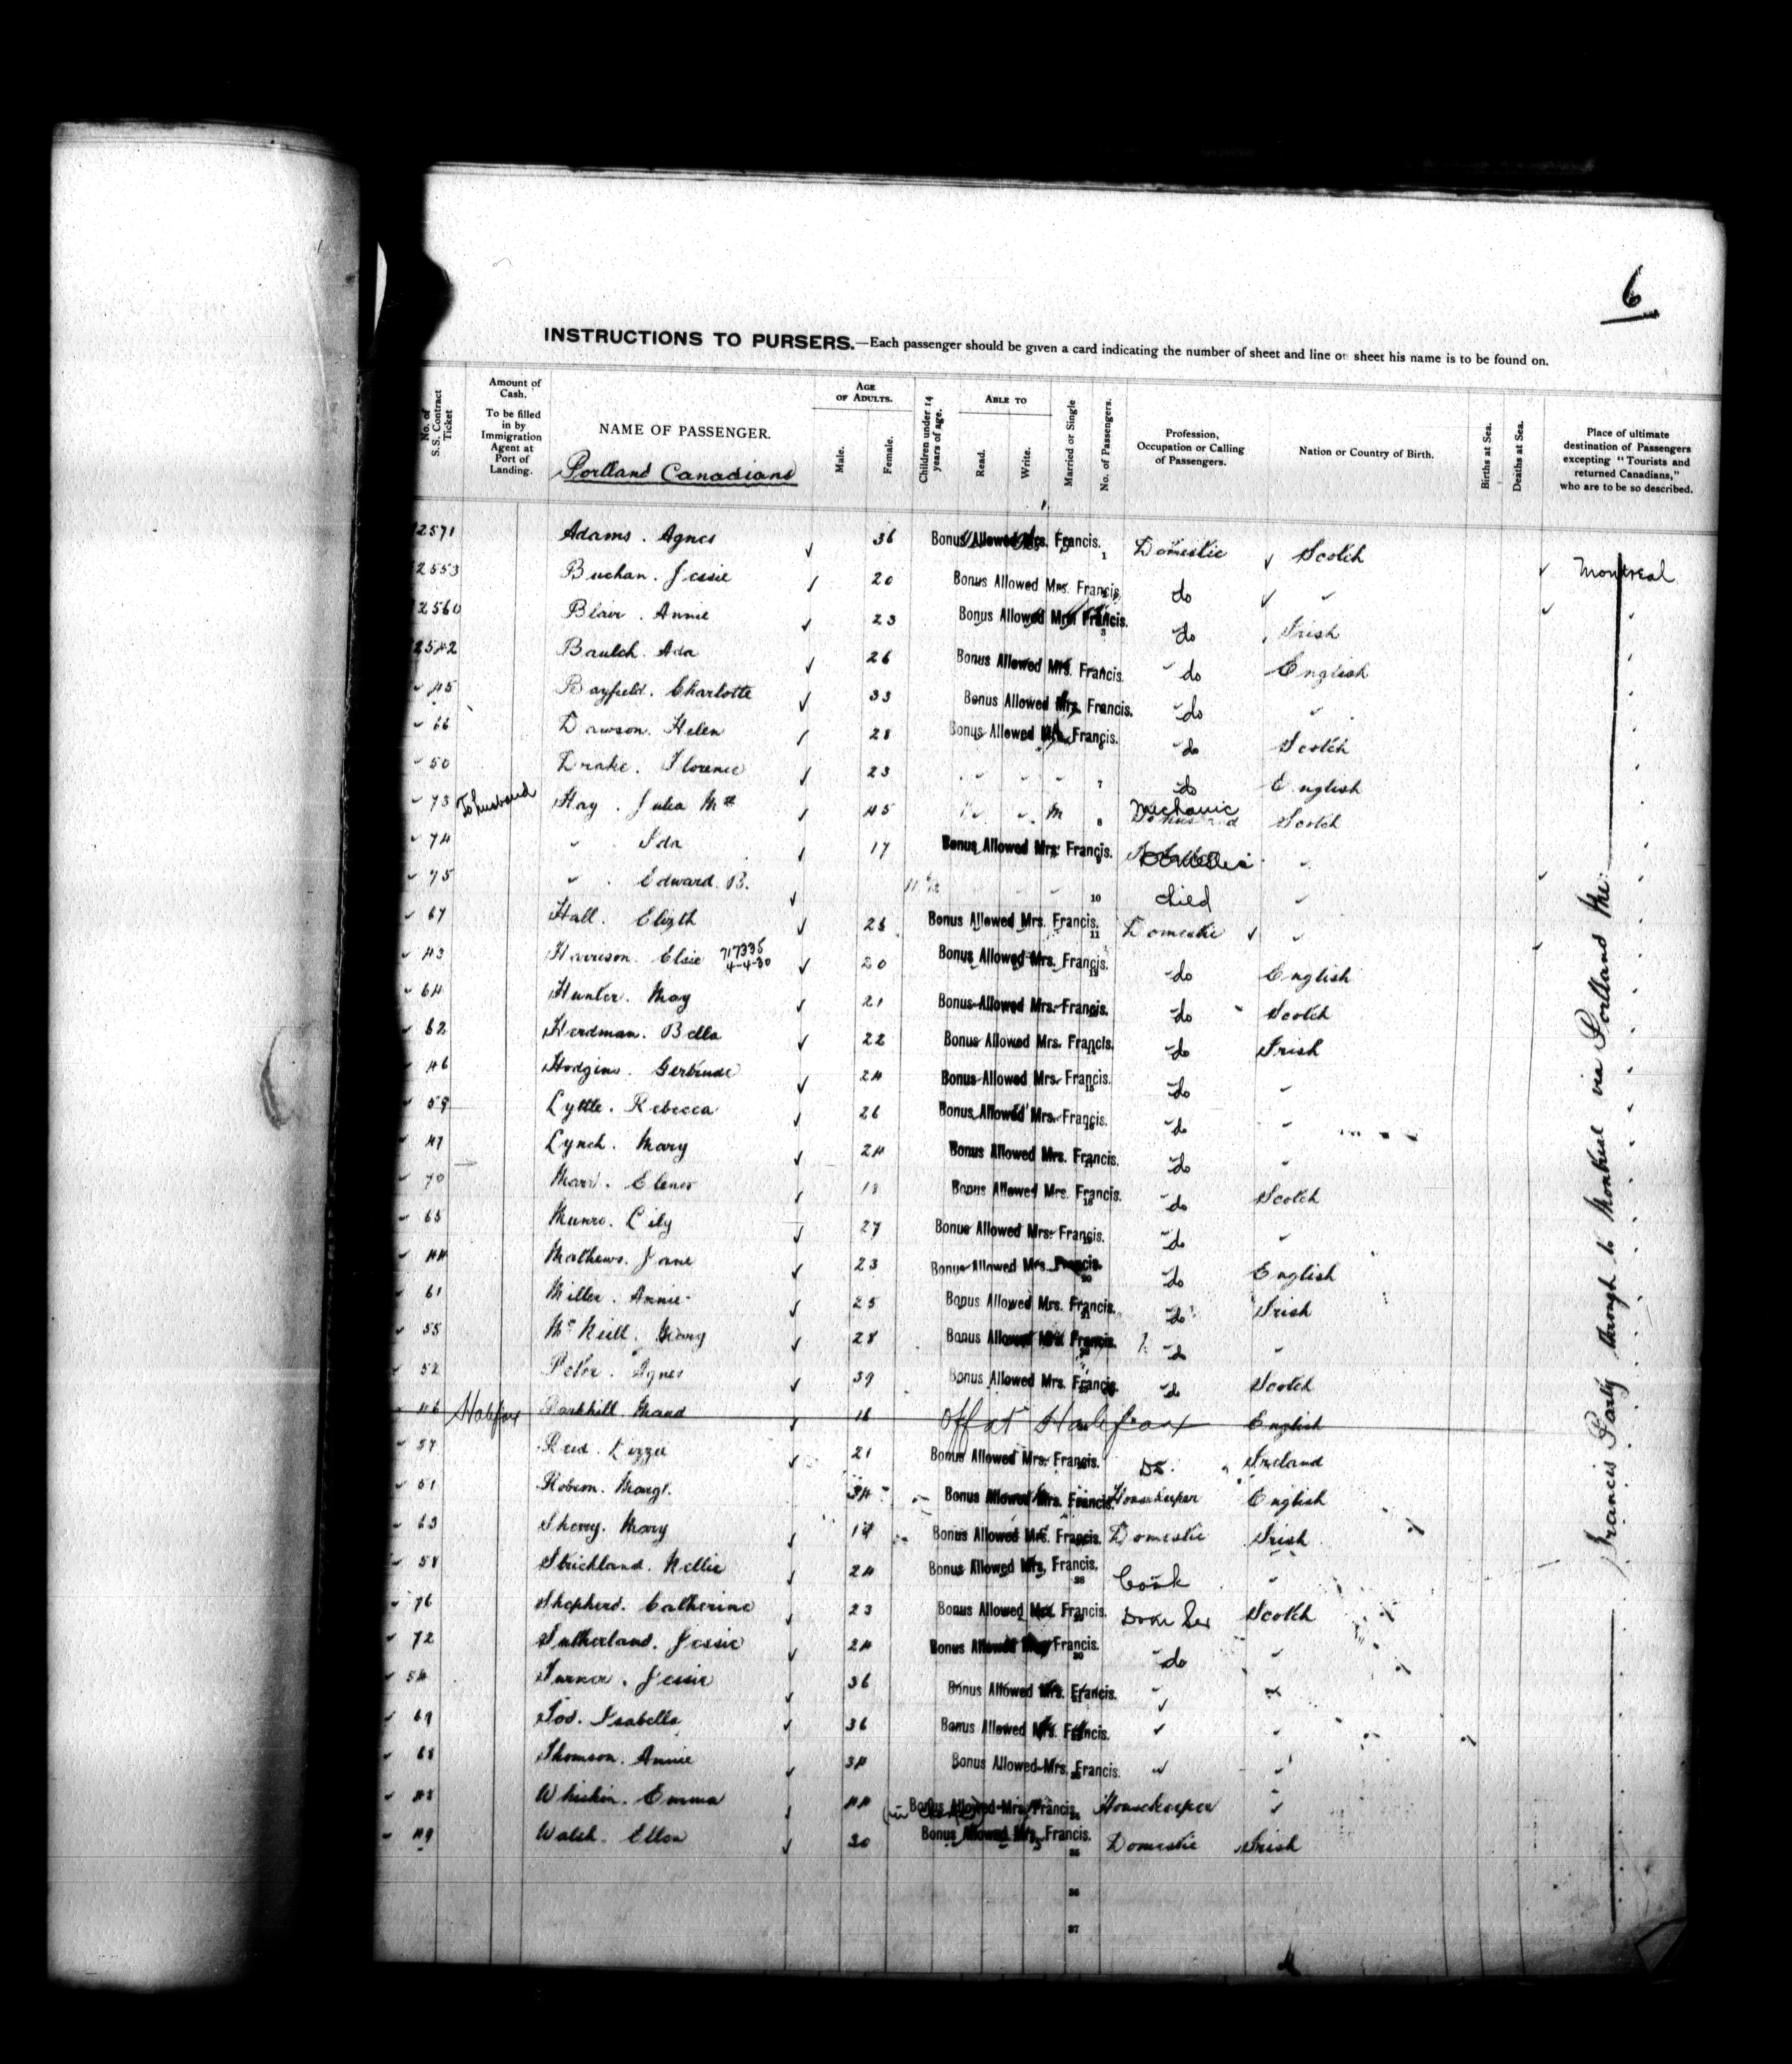 6
INSTRUCTIONS TO PURSERS.—Each passenger should be given a card indicating the number of sheet and line on sheet his name is to be found on.
No. of S.S. Contract Ticket
Amount of Cash. To be filled in by Immigration Agent at Port of Landing.
NAME OF PASSENGER.
Portland Canadians
AGE OF ADULTS.
Male.
Female.
Children under 14 years of age.
ABLE TO
Read.
Write.
Married or Single
No. of Passengers.
Profession, Occupation or Calling of Passengers.
Nation or Country of Birth.
Births at Sea.
Deaths at Sea.
Place of ultimate destination of Passengers excepting "Tourists and returned Canadians," who are to be so described.
2571 Adams. Agnes 36 Bonus Allowed Mrs. Francis. 1 Domestic Scotch Montreal
2553 Buchan. Jessie 20 Bonus Allowed Mrs. Francis. do "
2560 Blair. Annie 23 Bonus Allowed Mrs. Francis. 3 do Irish
2542 Baulch. Ada 26 Bonus Allowed Mrs. Francis. do English
" 45 Bayfield. Charlotte 33 Bonus Allowed Mrs. Francis. do "
" 66 Dawson. Helen 28 Bonus Allowed Mrs. Francis. do Scotch
" 50 Drake. Florence 23 " " " 7 do English
" 73 To husband Hay. Julia Mrs 45 " " M 8 Mechanic Scotch
" 74 " Ida 17 Bonus Allowed Mrs. Francis. "
" 75 " Edward B. 11 10 child "
" 67 Hall. Elizth 25 Bonus Allowed Mrs. Francis. 11 Domestic "
" 43 Harrison. Elsie 717335 4-4-30 20 Bonus Allowed Mrs. Francis. do English
" 64 Hunter. May 21 Bonus Allowed Mrs. Francis. do Scotch
" 62 Herdman. Bella 22 Bonus Allowed Mrs. Francis. do Irish
" 46 Hodgins. Gertrude 24 Bonus Allowed Mrs. Francis. 15 do "
" 59 Lyttle. Rebecca 26 Bonus Allowed Mrs. Francis. do "
" 47 Lynch. Mary 24 Bonus Allowed Mrs. Francis. do "
" 70 Marr. Elenor 18 Bonus Allowed Mrs. Francis. 18 do Scotch
" 65 Munro. Lily 27 Bonus Allowed Mrs. Francis. do "
" 44 Mathews. Jane 23 Bonus Allowed Mrs. Francis. 20 do English
" 61 Miller. Annie 25 Bonus Allowed Mrs. Francis. 21 do Irish
" 55 McNeill. Mary 28 Bonus Allowed Mrs. Francis. do "
" 52 Peter. Agnes 39 Bonus Allowed Mrs. Francis. do Scotch
" 46 Halifax Parkhill. Maud 16 Off at Halifax English
" 57 Reid. Lizzie 21 Bonus Allowed Mrs. Francis. Do. Ireland
" 51 Robson. Margt. 34 Bonus Allowed Mrs. Francis. Housekeeper English
" 63 Sherry. Mary 19 Bonus Allowed Mrs. Francis. Domestic Irish
" 58 Strickland. Nellie 24 Bonus Allowed Mrs. Francis. 28 Cook "
" 76 Shepherd. Catherine 23 Bonus Allowed Mrs. Francis. Dom Ser Scotch
" 72 Sutherland. Jessie 24 Bonus Allowed Mrs. Francis. 30 do "
" 54 Turner. Jessie 36 Bonus Allowed Mrs. Francis. " "
" 69 Tod. Isabella 36 Bonus Allowed Mrs. Francis. " "
" 68 Thomson. Annie 34 Bonus Allowed Mrs. Francis. " "
" 48 Whiskin. Emma 44 Bonus Allowed Mrs. Francis. Housekeeper "
" 49 Walsh. Ellen 30 Bonus Allowed Mrs. Francis. 35 Domestic Irish
36
37
Francis Party through to Montreal via Portland Me.